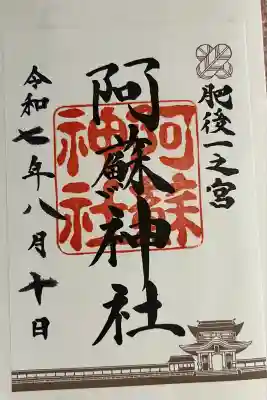 肥後一之宮
阿蘇神社
阿蘇神社
令和七年八月十日